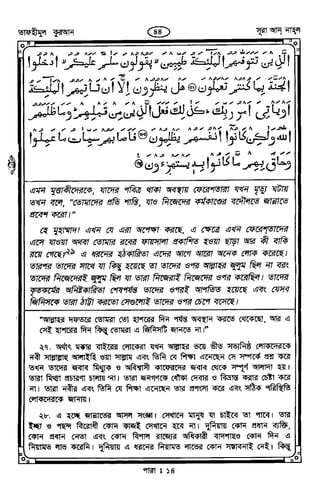 তাফহীমুল কুরআন
৪৪
সূরা আন নাহল
الَّذِينَ تَتَوَفَّىٰهُمُ الْمَلَٰئِكَةُ طَيِّبِينَ ۙ يَقُولُونَ سَلَٰمٌ عَلَيْكُمُ ۙ ادْخُلُوا
الْجَنَّةَ بِمَا كُنْتُمْ تَعْمَلُونَ ﴿٣٢﴾ هَلْ يَنْظُرُونَ إِلَّا أَنْ تَأْتِيَهُمُ الْمَلَٰئِكَةُ
أَوْ يَأْتِيَ أَمْرُ رَبِّكَ ۚ كَذَٰلِكَ فَعَلَ الَّذِينَ مِنْ قَبْلِهِمْ ۚ وَمَا ظَلَمَهُمُ
اللَّهُ وَلَٰكِنْ كَانُوا أَنْفُسَهُمْ يَظْلِمُونَ ﴿٣٣﴾ فَأَصَابَهُمْ سَيِّاٰتُ مَا عَمِلُوا
وَحَاقَ بِهِمْ مَا كَانُوا بِهِ يَسْتَهْزِءُونَ ﴿٣٤﴾
এমন মুত্তাকীদেরকে, যাদের পবিত্র থাকা অবস্থায় ফেরেশতারা যখন মৃত্যু ঘটায়
তখন বলে, "তোমাদের প্রতি শান্তি, যাও নিজেদের কর্মকাণ্ডের বদৌলতে জান্নাতে
প্রবেশ করো।"
হে মুহাম্মদ! এখন যে এরা অপেক্ষা করছে, এ ক্ষেত্রে এখন ফেরেশতাদের
এসে যাওয়া অথবা তোমার রবের ফায়সালা প্রকাশিত হওয়া ছাড়া আর কী বাকি
রয়ে গেছে? এ ধরনের হঠকারিতা এদের আগে আরো অনেক লোক করেছে।
তারপর তাদের সাথে যা কিছু হয়েছে তা তাদের ওপর আল্লাহর জুলুম ছিল না বরং
তাদের নিজেদেরই জুলুম ছিল যা তারা নিজেরাই নিজেদের ওপর করেছিল। তাদের
কৃতকর্মের অনিষ্টকারিতা শেষপর্যন্ত তাদের ওপরই আপতিত হয়েছে এবং যেসব
জিনিসকে তারা ঠাট্টা করতো সেগুলোই তাদের ওপর চেপে বসেছে।
"আল্লাহর দফতরে তোমরা তো হাশরের দিন পর্যন্ত অবস্থান করতে থেকেছো, আর এ
সেই হাশরের দিন কিন্তু তোমরা এ জিনিসটি জানতে না।"
২৭. অর্থাৎ মক্কার বাইরের লোকেরা যখন আল্লাহর ভয়ে ভীত সত্যনিষ্ঠ লোকদেরকে
নবী সাল্লাল্লাহু আলাইহি ওয়া সাল্লাম এবং তিনি যে শিক্ষা এনেছেন সে সম্পর্কে প্রশ্ন করে
তখন তাদের জবাব মিথ্যুক ও অবিশ্বাসী কাফেরদের জবাব থেকে সম্পূর্ণ আলাদা হয়।
তারা মিথ্যা প্রচারণা চালায় না। তারা জনগণকে ধোঁকা দেবার ও বিভ্রান্ত করার চেষ্টা করে
না। তারা নবীর এবং তিনি যে শিক্ষা এনেছেন তার প্রশংসা করে এবং সঠিক পরিস্থিতি
লোকদেরকে জানায়।
২৮. এ হচ্ছে জান্নাতের আসল সংজ্ঞা। সেখানে মানুষ যা চাইবে তা পাবে। তার
ইচ্ছা ও পছন্দ বিরোধী কোন কাজই সেখানে হবে না। দুনিয়ায় কোন প্রধান ব্যক্তি,
কোন প্রধান নেতা এবং কোন বিশাল রাজ্যের অধিকারী বাদশাহও কোন দিন এ
নিয়ামত লাভ করেনি। দুনিয়ায় এ ধরনের নিয়ামত লাভের কোন সম্ভাবনাই নেই। কিন্তু
পারা : ১৪